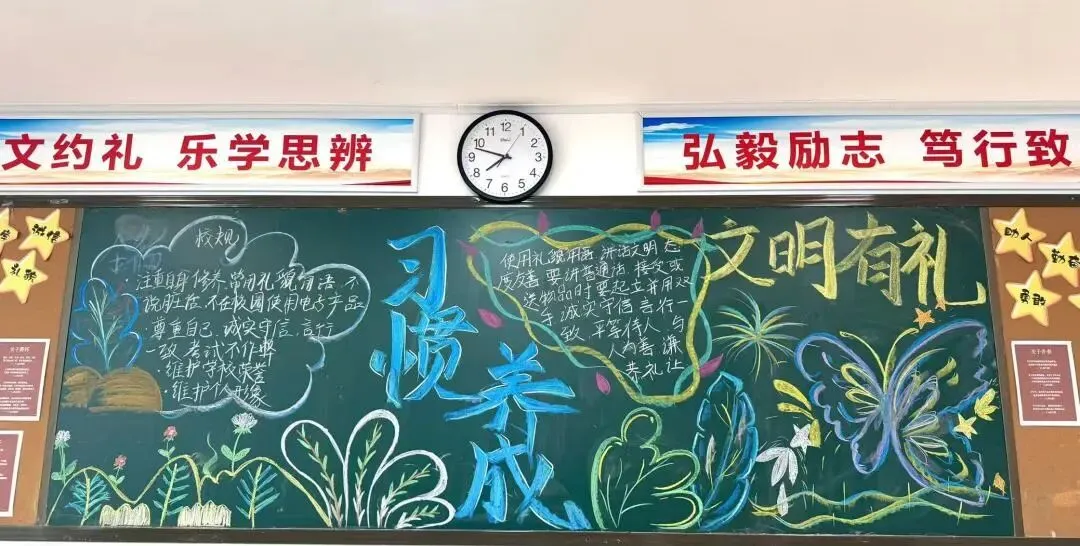 文约礼 乐学思辨
弘毅励志 笃行致
10 11 12 1 2 3 4 5 6 7 8 9
诚信
乐歌
助人
勤奋
勇敢
校规
·注重自身修养,常用礼貌用语,不
说脏话,不在校园使用电子产品
·尊重自己,诚实守信,言行
一致 考试不作弊
·维护学校荣誉
·维护个人形象
习惯
养成
使用礼貌用语 讲话文明 态
度友善 要讲普通话 接受或
送物品时要起立并用双
手 诚实守信 言行一
致 平等待人 与
人为善 谦
恭礼让
文明有礼